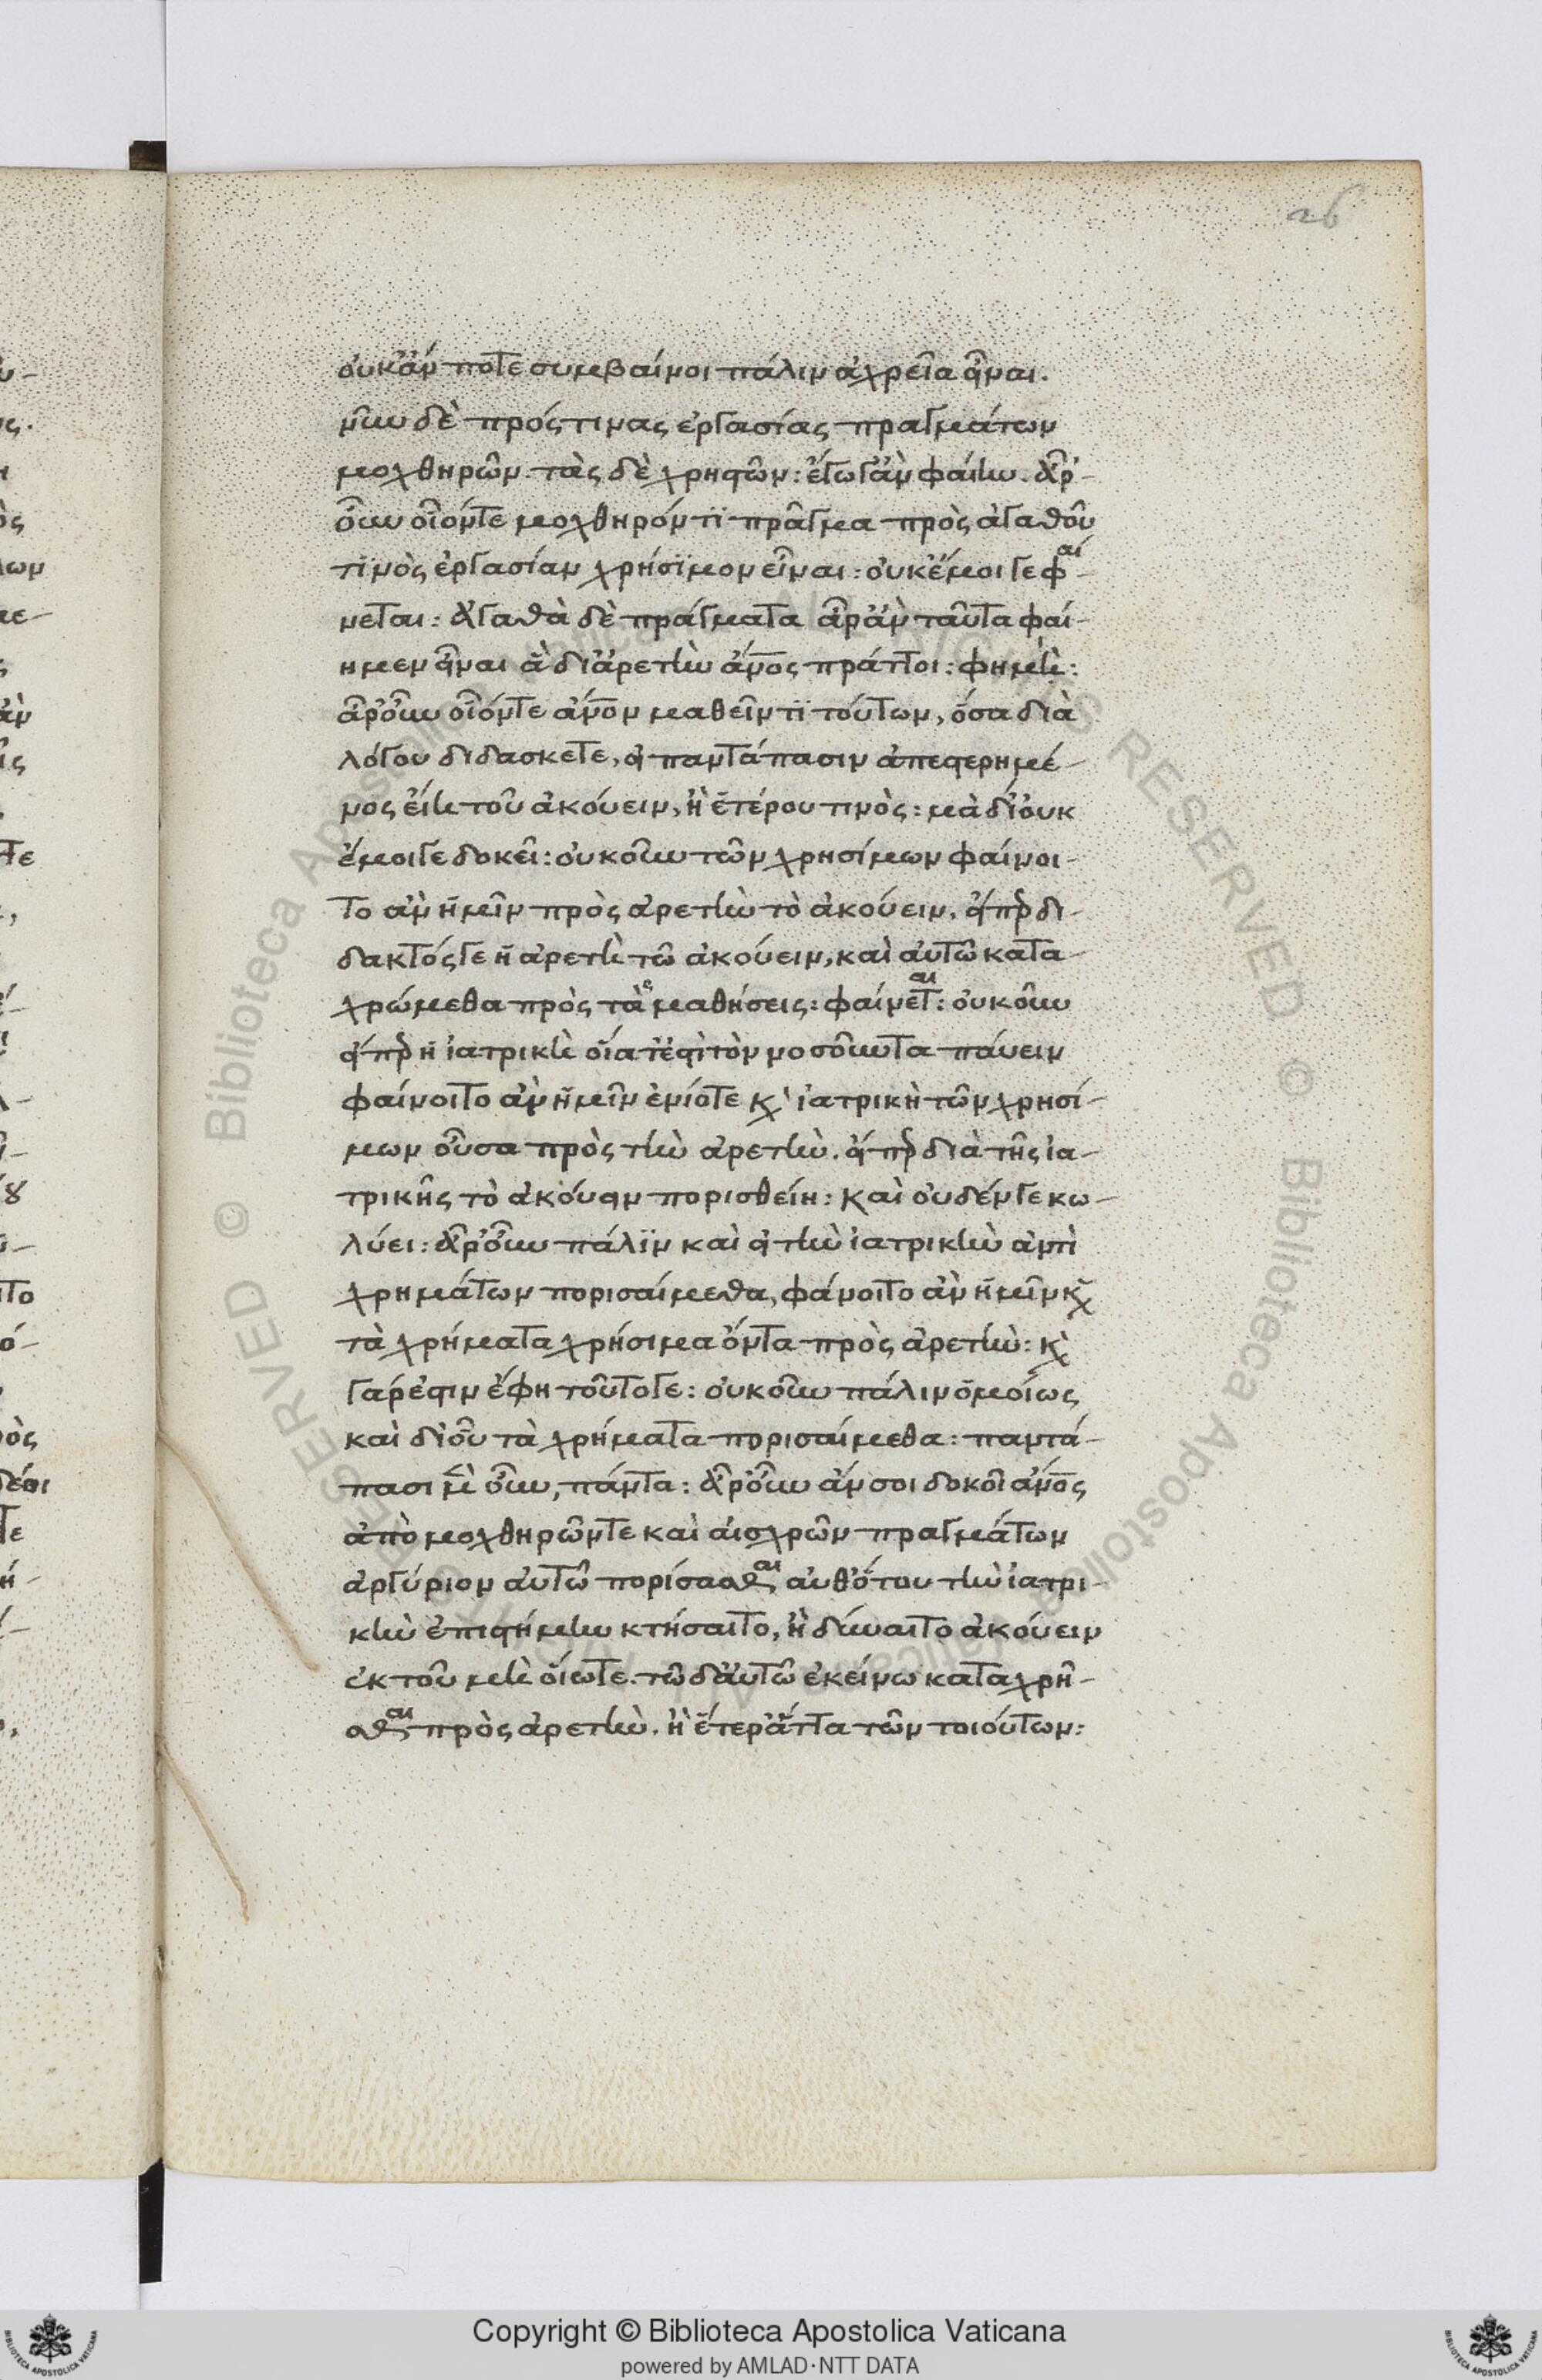 26
οὐκ ἄν ποτε συμβαίνοι πάλιν ἀχρεῖα εἶναι.
νῦν δὲ πρός τινας ἐργασίας πραγμάτων
μοχθηρῶν. τὰς δὲ χρηστῶν: ἔγωγ' ἂν φαίην. ἆρ'
οὖν οἷόν τε μοχθηρόν τϊ πρᾶγμα πρὸς ἀγαθοῦ
τϊνὸς ἐργασίαν χρήσϊμον εἶναι: οὐκ ἔμοιγε φαί-
νεται: ἀγαθὰ δὲ πράγματα ἆρ' ἂν ταῦτα φαί-
ημεν εἶναι ἃ δι' ἀρετὴν ἄνος πράττοι: φημὶ:
ἆρ' οὖν οἷόν τε ἄνον μαθεῖν τϊ τούτων, ὅσα διὰ
λόγου διδασκετε, εἰ παντάπασιν ἀπεστερημέ-
νος εἴη τοῦ ἀκούειν, ἢ ἑτέρου τινὸς: μὰ δί' οὐκ
ἔμοιγε δοκεῖ: οὐκοῦν τῶν χρησίμων φαίνοι-
το ἂν ἡμῖν πρὸς ἀρετὴν τὸ ἀκούειν. εἴπερ δι-
δακτός γε ἡ ἀρετὴ τῶ ἀκούειν, καὶ αὐτῶ κατα-
χρώμεθα πρὸς τὰς μαθήσεις: φαίνεται: οὐκοῦν
εἴπερ ἡ ἰατρικὴ οἵα τ' ἐστὶ τὸν νοσοῦντα πάυειν
φαίνοιτο ἂν ἡμῖν ἐνίοτε κ' ἰατρικὴ τῶν χρησί-
μων οὖσα πρὸς τὴν ἀρετὴν. εἴπερ διὰ τῆς ἰα-
τρικῆς τὸ ἀκούειν πορισθείη: καὶ οὐδέν γε κω-
λύει: ἆρ' οὖν πάλϊν καὶ εἰ τὴν ἰατρικὴν ἀντὶ
χρημάτων πορισαίμεθα, φάνοιτο ἂν ἡμῖν κ
τὰ χρήματα χρήσιμα ὄντα πρὸς ἀρετὴν: κ
γάρ ἐστιν ἔφη τοῦτό γε: οὐκοῦν πάλιν ὁμοίως
καὶ δι' οὗ τὰ χρήματα πορισαίμεθα: παντά-
πασι μὲν οὖν, πάντα: ἆρ' οὖν ἄν σοι δοκοῖ ἄνος
ἀπὸ μοχθηρῶν τε καὶ αἰσχρῶν πραγμάτων
ἀργύριον αὐτῶ πορίσασθαι ἀνθ' ὅτου τὴν ἰατρι-
κὴν ἐπιστήμην κτήσαιτο, ἢ δύναιτο ἀκούειν
ἐκ τοῦ μὴ οἵω τε. τῶ δ' αὐτῶ ἐκείνω καταχρῆ-
σθαι πρὸς ἀρετὴν. ἢ ἕτερ' ἄττα τῶν τοιούτων:
Copyright © Biblioteca Apostolica Vaticana
powered by AMLAD·NTT DATA